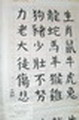 生肖鼠牛虎兔
龍蛇馬羊猴雞
狗豬少壯不努
力老大徒傷悲